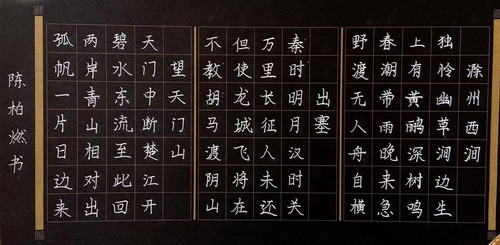 滁州西涧
独怜幽草涧边生
上有黄鹂深树鸣
春潮带雨晚来急
野渡无人舟自横
出塞
秦时明月汉时关
万里长征人未还
但使龙城飞将在
不教胡马渡阴山
望天门山
天门中断楚江开
碧水东流至此回
两岸青山相对出
孤帆一片日边来
陈柏燃书